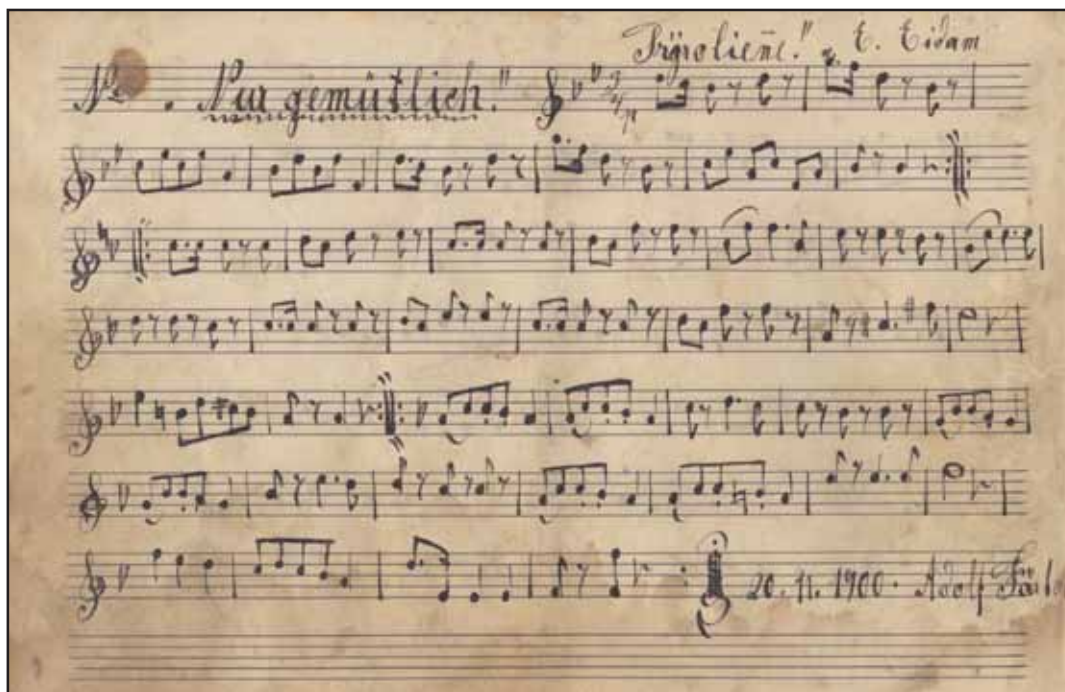 Tyroliene." E. Eidam
No . Nur gemütlich."
20. 11. 1900. Adolf